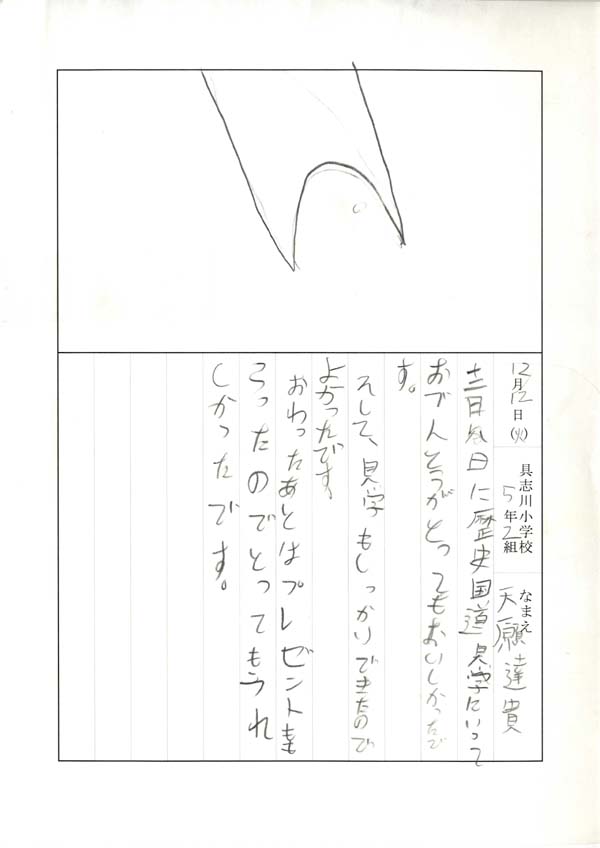 12月12日(火)
具志川小学校
5年2組
なまえ
天願達貴
日に歴史国道見学にいって
がとってもおいしかったで
す。
そして、見学もしっかりできたので
よかったです。
おわったあとはプレゼントも
らったのでとってもうれ
しかったです。